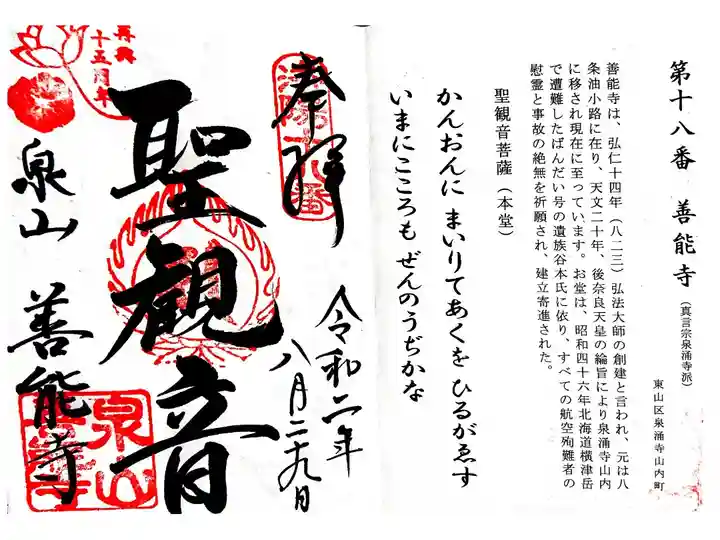 第十八番 善能寺（真言宗泉涌寺派）
東山区泉涌寺山内町
善能寺は、弘仁十四年（八二三）弘法大師の創建と言われ、元は八
条油小路に在り、天文二十年、後奈良天皇の綸旨により泉涌寺山内
に移され現在に至っています。お堂は、昭和四十六年北海道横津岳
で遭難したばんだい号の遺族谷本氏に依り、すべての航空殉難者の
慰霊と事故の絶無を祈願され、建立寄進された。
聖観音菩薩（本堂）
かんおんに まいりてあくを ひるがゑす
いまにこころも ぜんのうぢかな
奉拝
令和二年
八月二十九日
聖観音
泉山 善能寺
再興
十五周年
洛陽十八番
泉山
善能寺